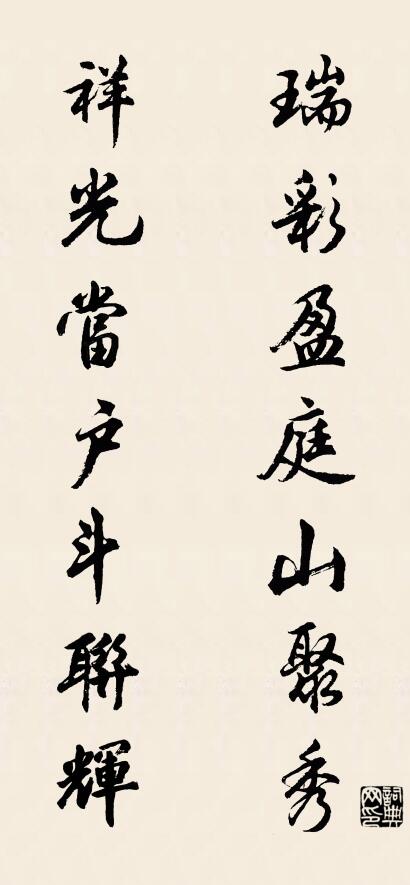 瑞彩盈庭山聚秀
祥光當户斗聯輝
詞典網印